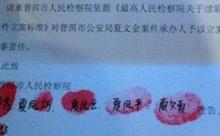 请求普洱市人民检察院依据《最高人民检察院关于渎职
件立案标准》对普洱市公安局夏文金案件承办人予以立案
事责任。
此致
普洱市人民检察院
夏凤巧 夏凤云 夏凤平
告